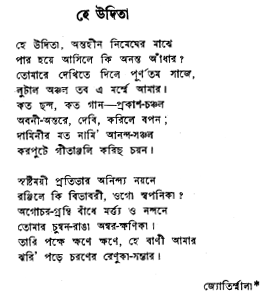 হে উদ্বিতা
হে উদ্বিতা, অন্তহীন নিমেষের মাঝে
পার হয়ে আসিলে কি অনন্ত আঁধার?
তোমারে দেখিতে দিলে পূর্ণতম সাজে,
লুটাল অঞ্চল তব এ মর্ম্মে আমার।
কত ছন্দ, কত গান—প্রকাশ-চঞ্চল
অবনী-অন্তরে, দেবি, করিলে বপন;
দামিনীর মত নামি' আনন্দ-সঞ্চল
করপুটে গীতাঞ্জলি করিছ চয়ন।
স্বষ্টিময়ী প্রতিভার অনিন্দ্য নয়নে
রঞ্জিলে কি বিভাবরী, ওগো স্বপনিকা?
অগোচর-গ্রন্থি বাঁধে মর্ত্ত্য ও নন্দনে
তোমার চুম্বন-রাঙা অম্বর-ক্ষণিকা।
তারি পক্ষে ক্ষণে ক্ষণে, হে বাণী আমার
ঝরি' পড়ে চরণের রেণুকা-সম্ভার।
জ্যোতির্ম্মালা*